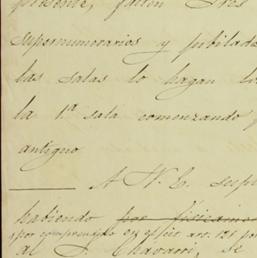 presente, fallen tres
supernumerarios y jubilado
las salas lo hagan
la 1ª sala comenzando
antiguo
A V. E. sup
habiendo
por comprendido en
al S. Chavarri, se